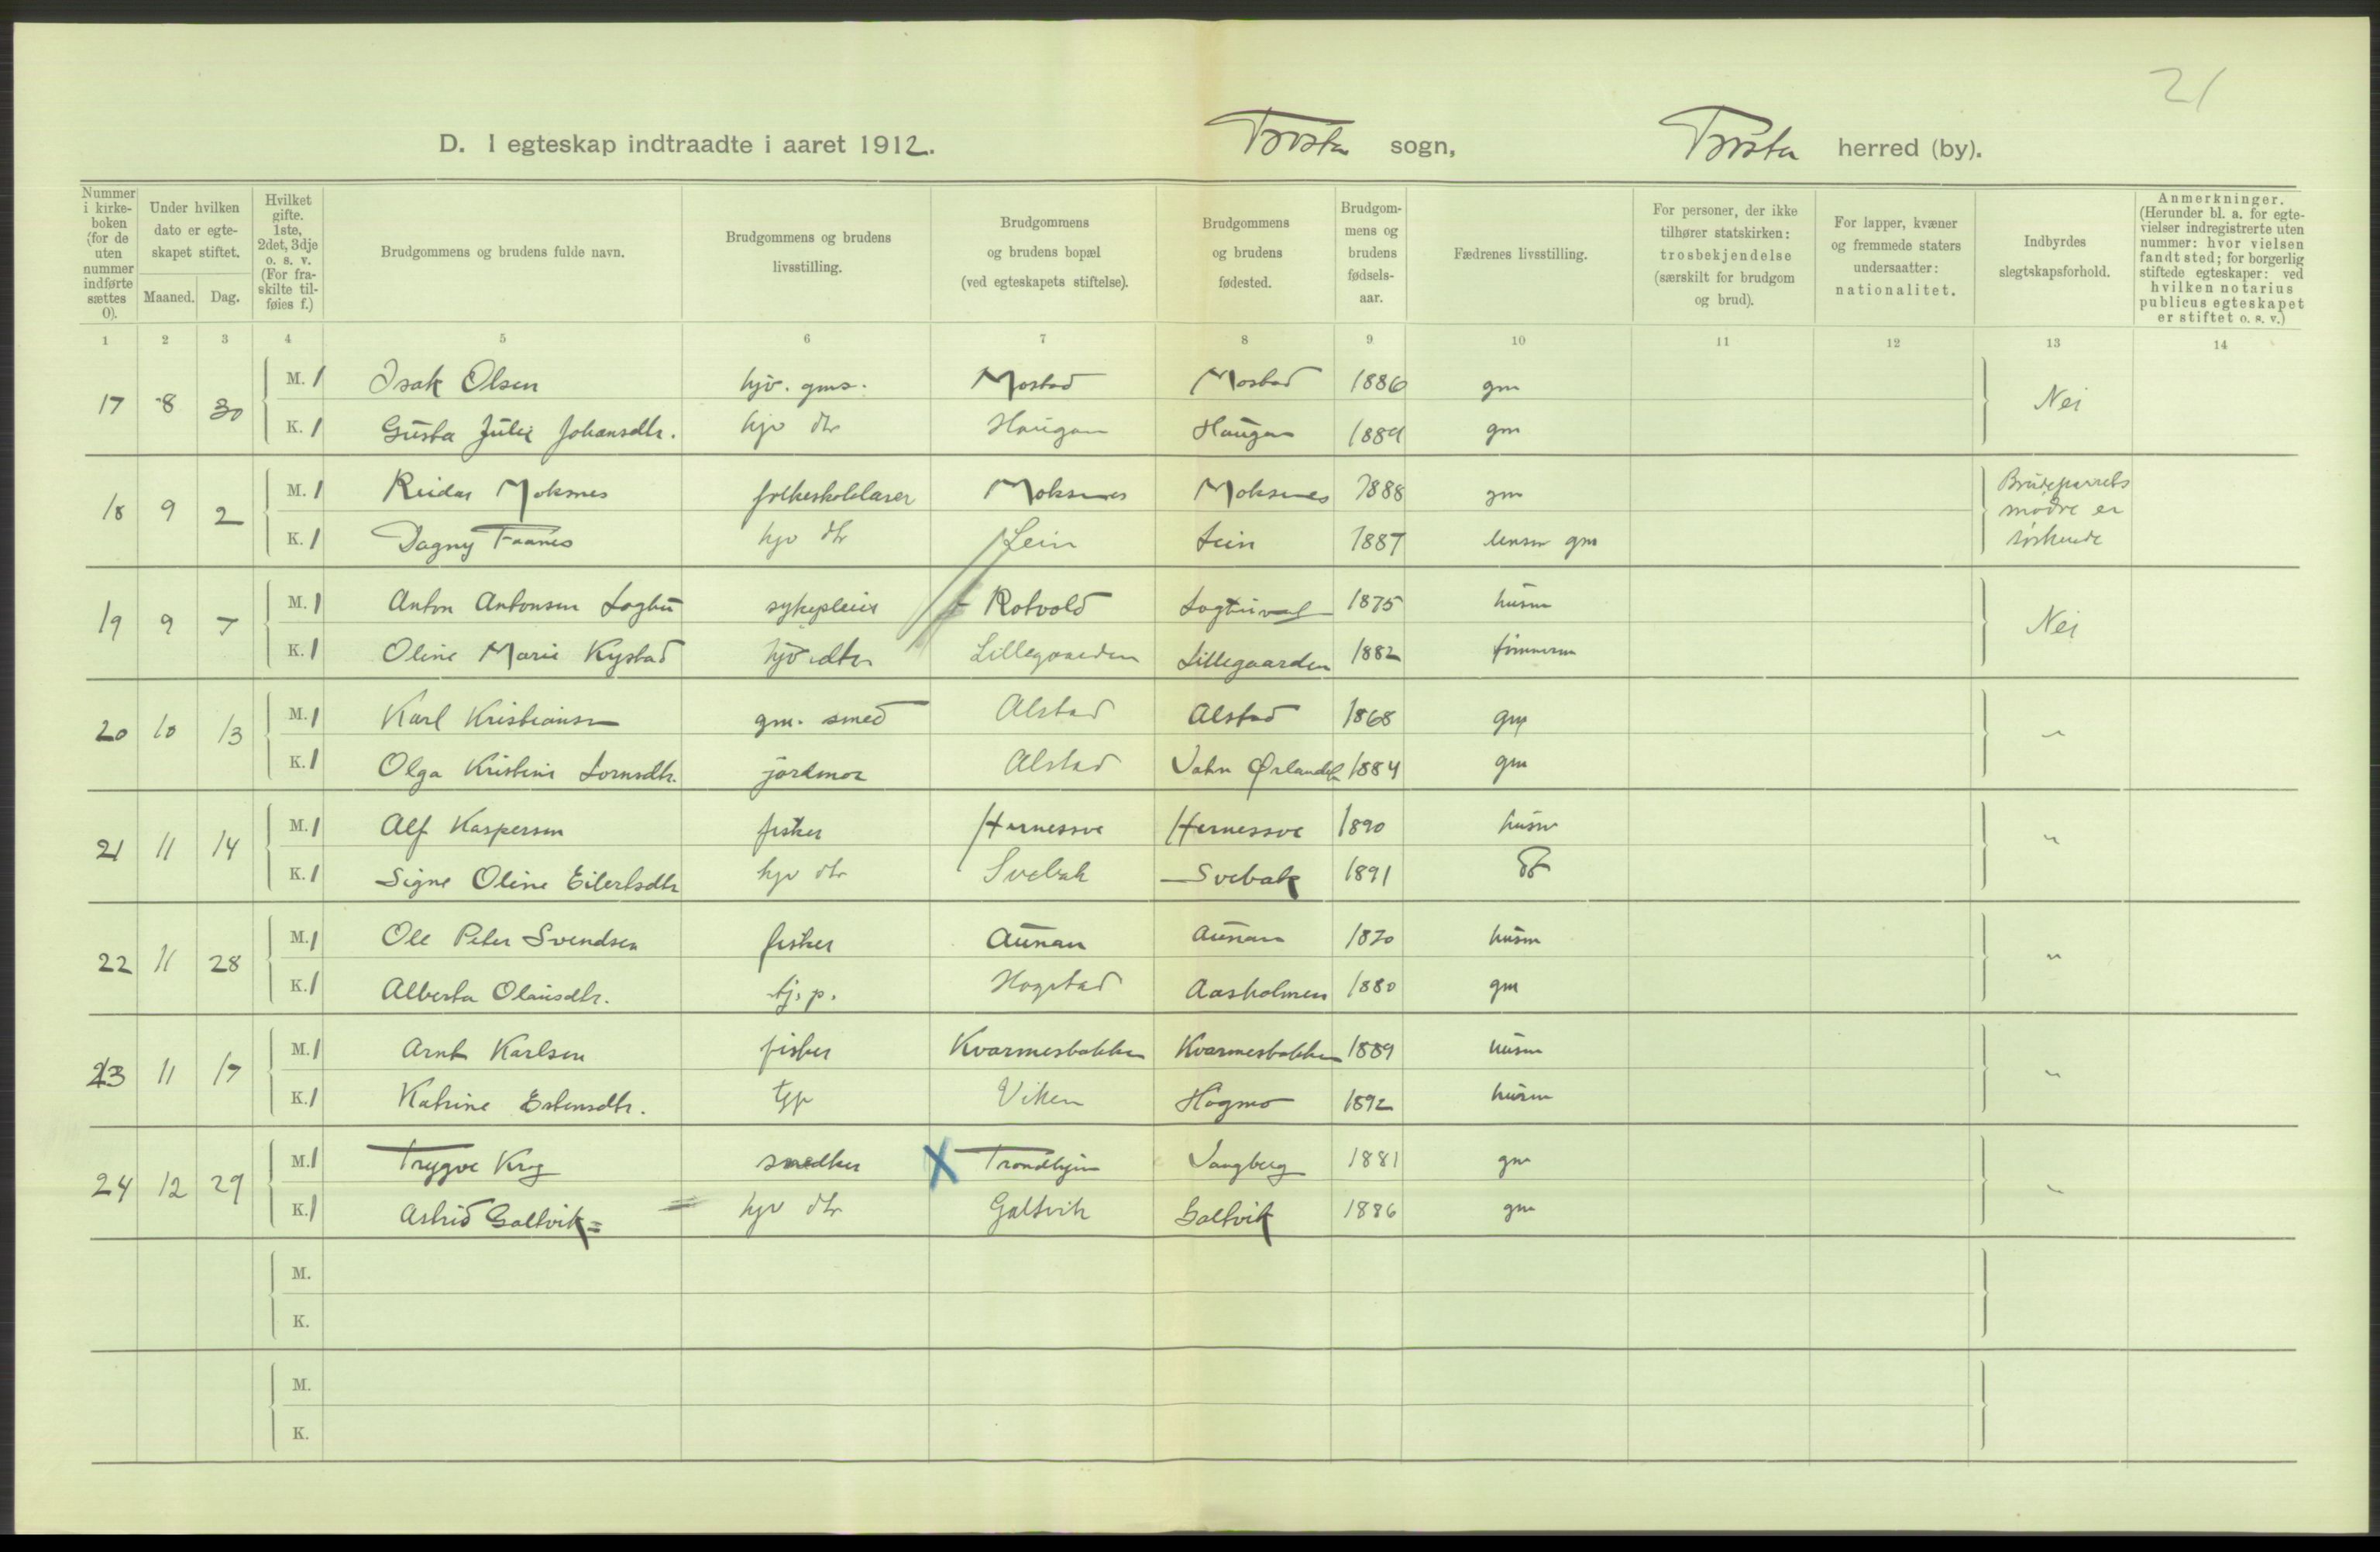 21
D. I egteskap indtraadte i aaret 1912. sogn, herred (by).
Nummer i kirke-boken (for de uten nummer indførte sættes 0).
Under hvilken dato er egte-skapet stiftet.
Maaned. Dag.
Hvilket gifte. 1ste, 2det, 3dje o. s. v. (For fra-skilte til-føies f.)
Brudgommens og brudens fulde navn.
Brudgommens og brudens livsstilling.
Brudgommens og brudens bopæl (ved egteskapets stiftelse).
Brudgommens og brudens fødested.
Brudgom-mens og brudens fødsels-aar.
Fædrenes livsstilling.
For personer, der ikke tilhører statskirken: trosbekjendelse (særskilt for brudgom og brud).
For lapper, kvæner og fremmede staters undersaatter: nationalitet.
Indbyrdes slegtskapsforhold.
Anmerkninger. (Herunder bl. a. for egte-vielser indregistrerte uten nummer: hvor vielsen fandt sted; for borgerlig stiftede egteskaper: ved hvilken notarius publicus egteskapet er stiftet o. s. v.)
1 2 3 4 5 6 7 8 9 10 11 12 13 14
17 8 30 M. 1 Isak Olsen hjv. gms. Mostad Mostad 1886 gm Nei
K. 1 Gusta Julie Johansdtr. hjv dtr Haugan Haugan 1889 gm
18 9 2 M. 1 Reidar Moksnes folkeskolelærer Moksnes Moksnes 1888 gm Brudeparrets mødre er søskende
K. 1 Dagny Faanes hjv dtr Lein Lein 1887 lensm gm
19 9 7 M. 1 Anton Antonsen sykepleier Rotvold 1875 husm Nei
K. 1 Oline Marie Kystad hjv dtr Lillegaarden Lillegaarden 1882
20 10 13 M. 1 Karl Kristiansen gm. smed Alstad Alstad 1868 gm "
K. 1 Olga Kristine jordmor Alstad 1884 gm
21 11 14 M. 1 Alf Kaspersen fisker Hernessve Hernessve 1890 husm "
K. 1 Signe Oline Eilertsdtr hjv dtr Svebak Svebak 1891
22 11 28 M. 1 Ole Peter Svendsen fisker Aunan Aunan 1870 husm "
K. 1 Alberta Olausdtr. tj. p. Hogstad Aasholmen 1880 gm
23 11 17 M. 1 Arnt Karlsen fisker Kvarmesbakken Kvarmesbakken 1889 husm "
K. 1 Katrine Estensdtr. tjp Viken Hogmo 1892 husm
24 12 29 M. 1 Trygve Krog snedker X Trondhjem Vangberg 1881 gm "
K. 1 Astrid Galtvik = hjv dtr Galtvik Galtvik 1886 gm
M.
K.
M.
K.